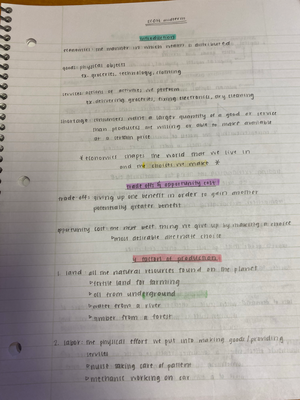 econ midterm
introduction
goods: physical objects
ex. groceries, technology, clothing
services: actions or activities one performs
shortage: consumers desire a larger quantity of a good or service
than producers are willing or able to make available
at a certain price
* Economics shapes the world that we live in
and the choices we make *
trade offs & opportunity cost
trade-off: giving up one benefit in order to gain another
potentially greater benefit
opportunity cost: the next best thing we give up by making a choice
most desirable alternate choice
4 factors of production
1. land: all the natural resources found on the planet
fertile land for farming
oil from underground
water from a river
timber from a forest
2. labor: the physical effort we put into making goods/providing
services
nurse taking care of patient
mechanic working on car